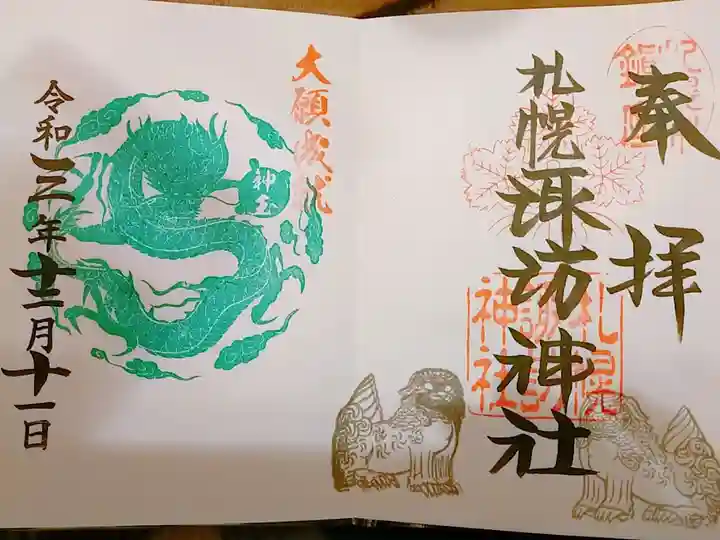 奉拝
札幌諏訪神社
札幌
諏訪
神社
大願成就
神玉
令和三年十二月十一日